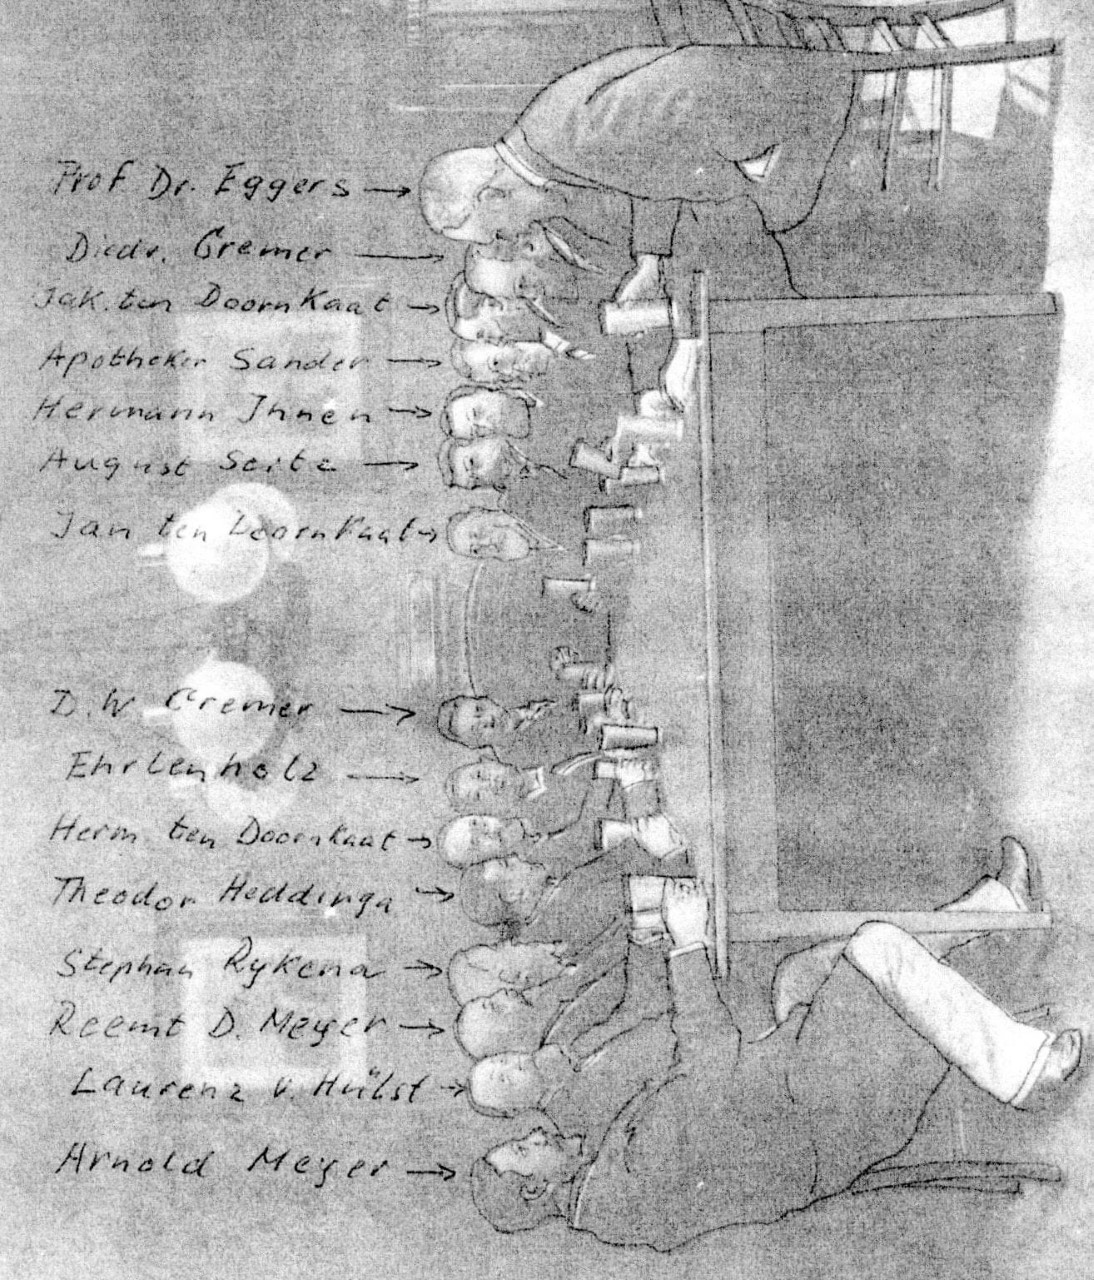 Prof Dr. Eggers
Diedr. Cremer
Jak. ten Doornkaat
Apotheker Sander
Hermann Ihnen
August Seitz
Jan ten Doornkaat
D. W Cremer
Ehrlenholz
Herm. ten Doornkaat
Theodor Heddinga
Stephan Rykena
Reemt D. Meyer
Laurenz v. Hülst
Arnold Meyer